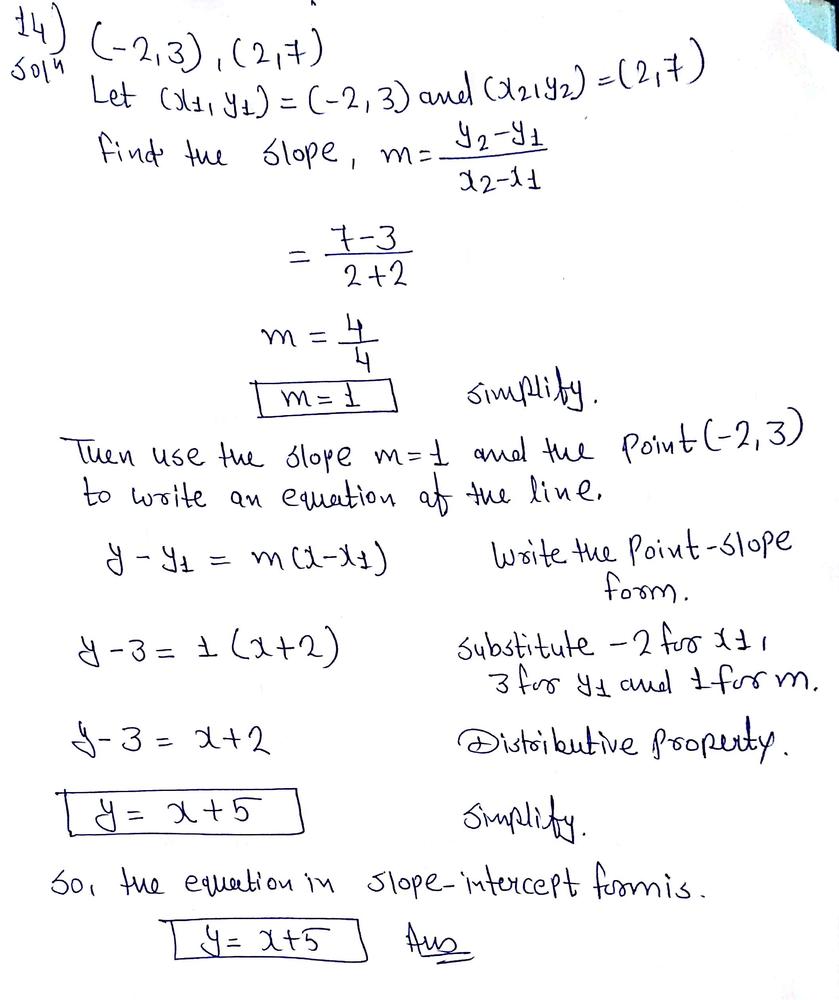 14) (-2,3), (2,7)
Solⁿ
Let (x1, y1) = (-2, 3) and (x2, y2) = (2,7)
find the slope, m = (y2-y1)/(x2-x1)
= (7-3)/(2+2)
m = 4/4
m = 1 simplify.
Then use the slope m=1 and the point (-2,3)
to write an equation of the line.
y - y1 = m(x-x1) Write the Point-slope
form.
y-3 = 1(x+2) substitute -2 for x1,
3 for y1 and 1 for m.
y-3 = x+2 Distributive Property.
y = x+5 simplify.
So, the equation in slope-intercept form is.
y = x+5 Ans